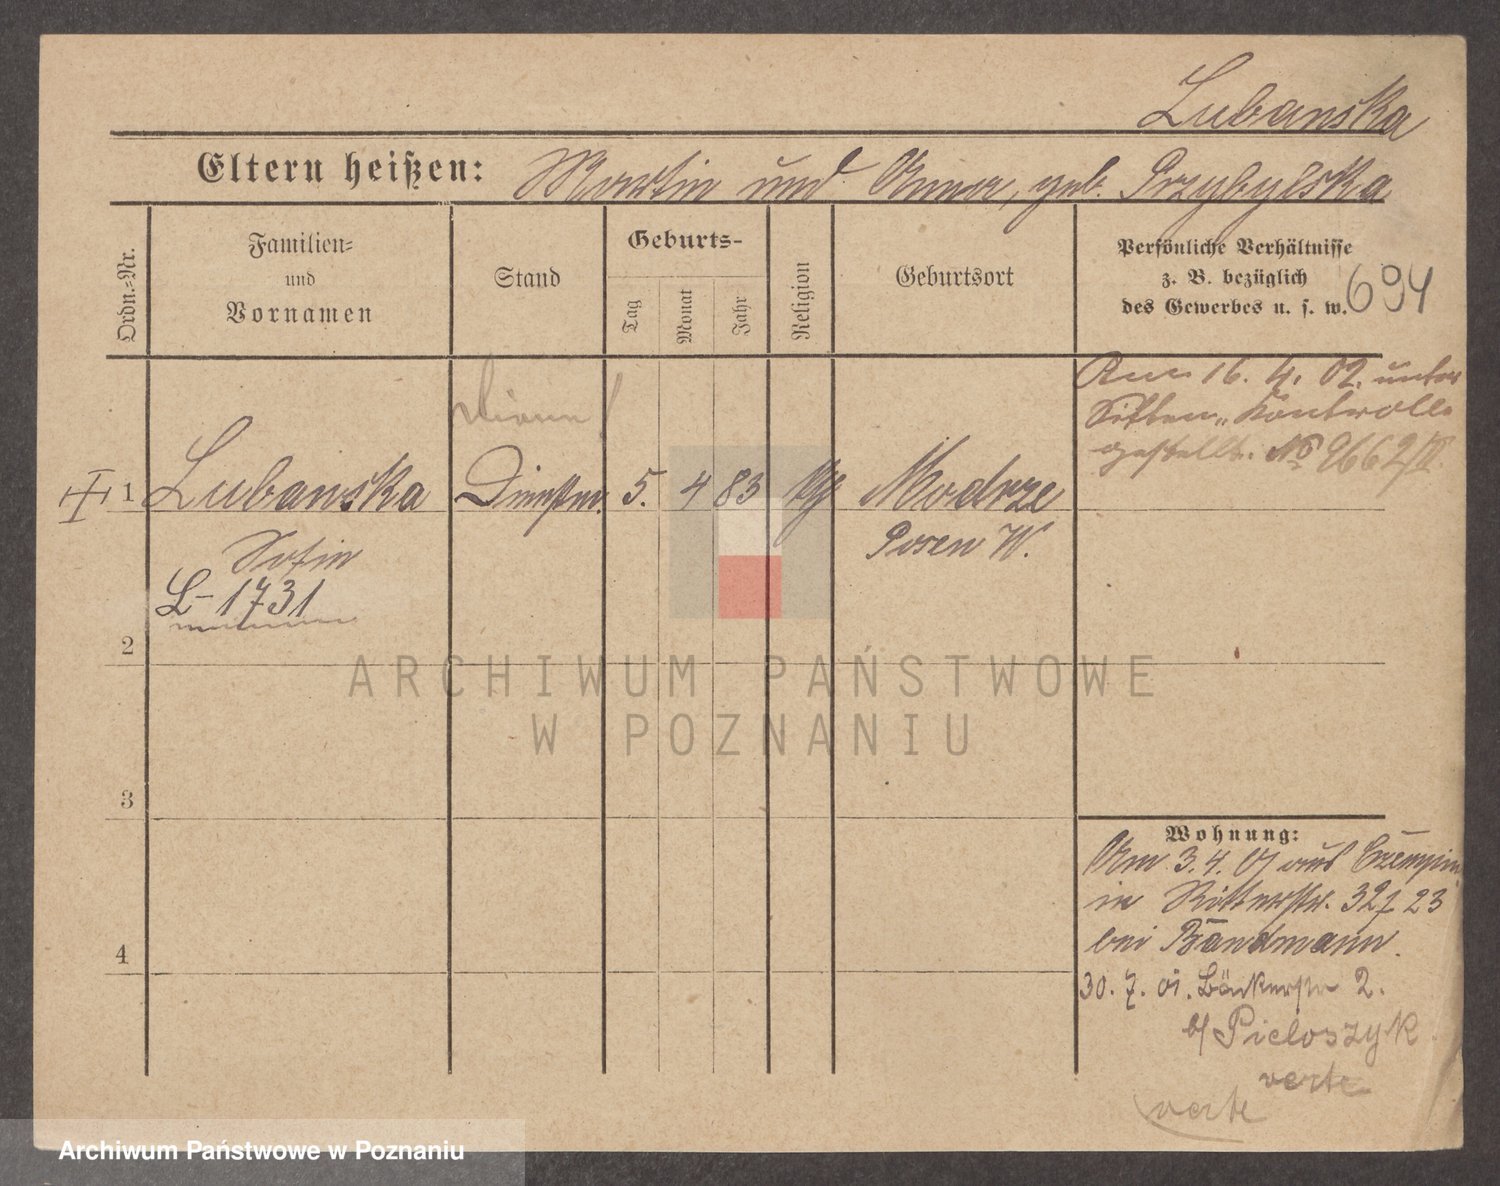 Lubanska
Eltern heißen: Martin und Anna, geb. Przybylska
Ordn.-Nr.
Familien-
und
Vornamen
Stand
Geburts-
Tag
Monat
Jahr
Religion
Geburtsort
Persönliche Verhältnisse
z. B. bezüglich
des Gewerbes u. s. w.
694
Am 16. 4. 02. unter
Sitten-Kontrolle
gestellt. No 9662/II.
1 Lubanska 5. 4 83 Modrze
Sofie
Posen W.
L-1731
2
3
4
Wohnung:
Am 3.4.01 aus Czempin
in Ritterstr. 32 23
bei Bandmann.
30. 7. 01. Bäckerstr 2.
b/ Pieloszyk
verte
verte
ARCHIWUM PAŃSTWOWE
W POZNANIU
Archiwum Państwowe w Poznaniu